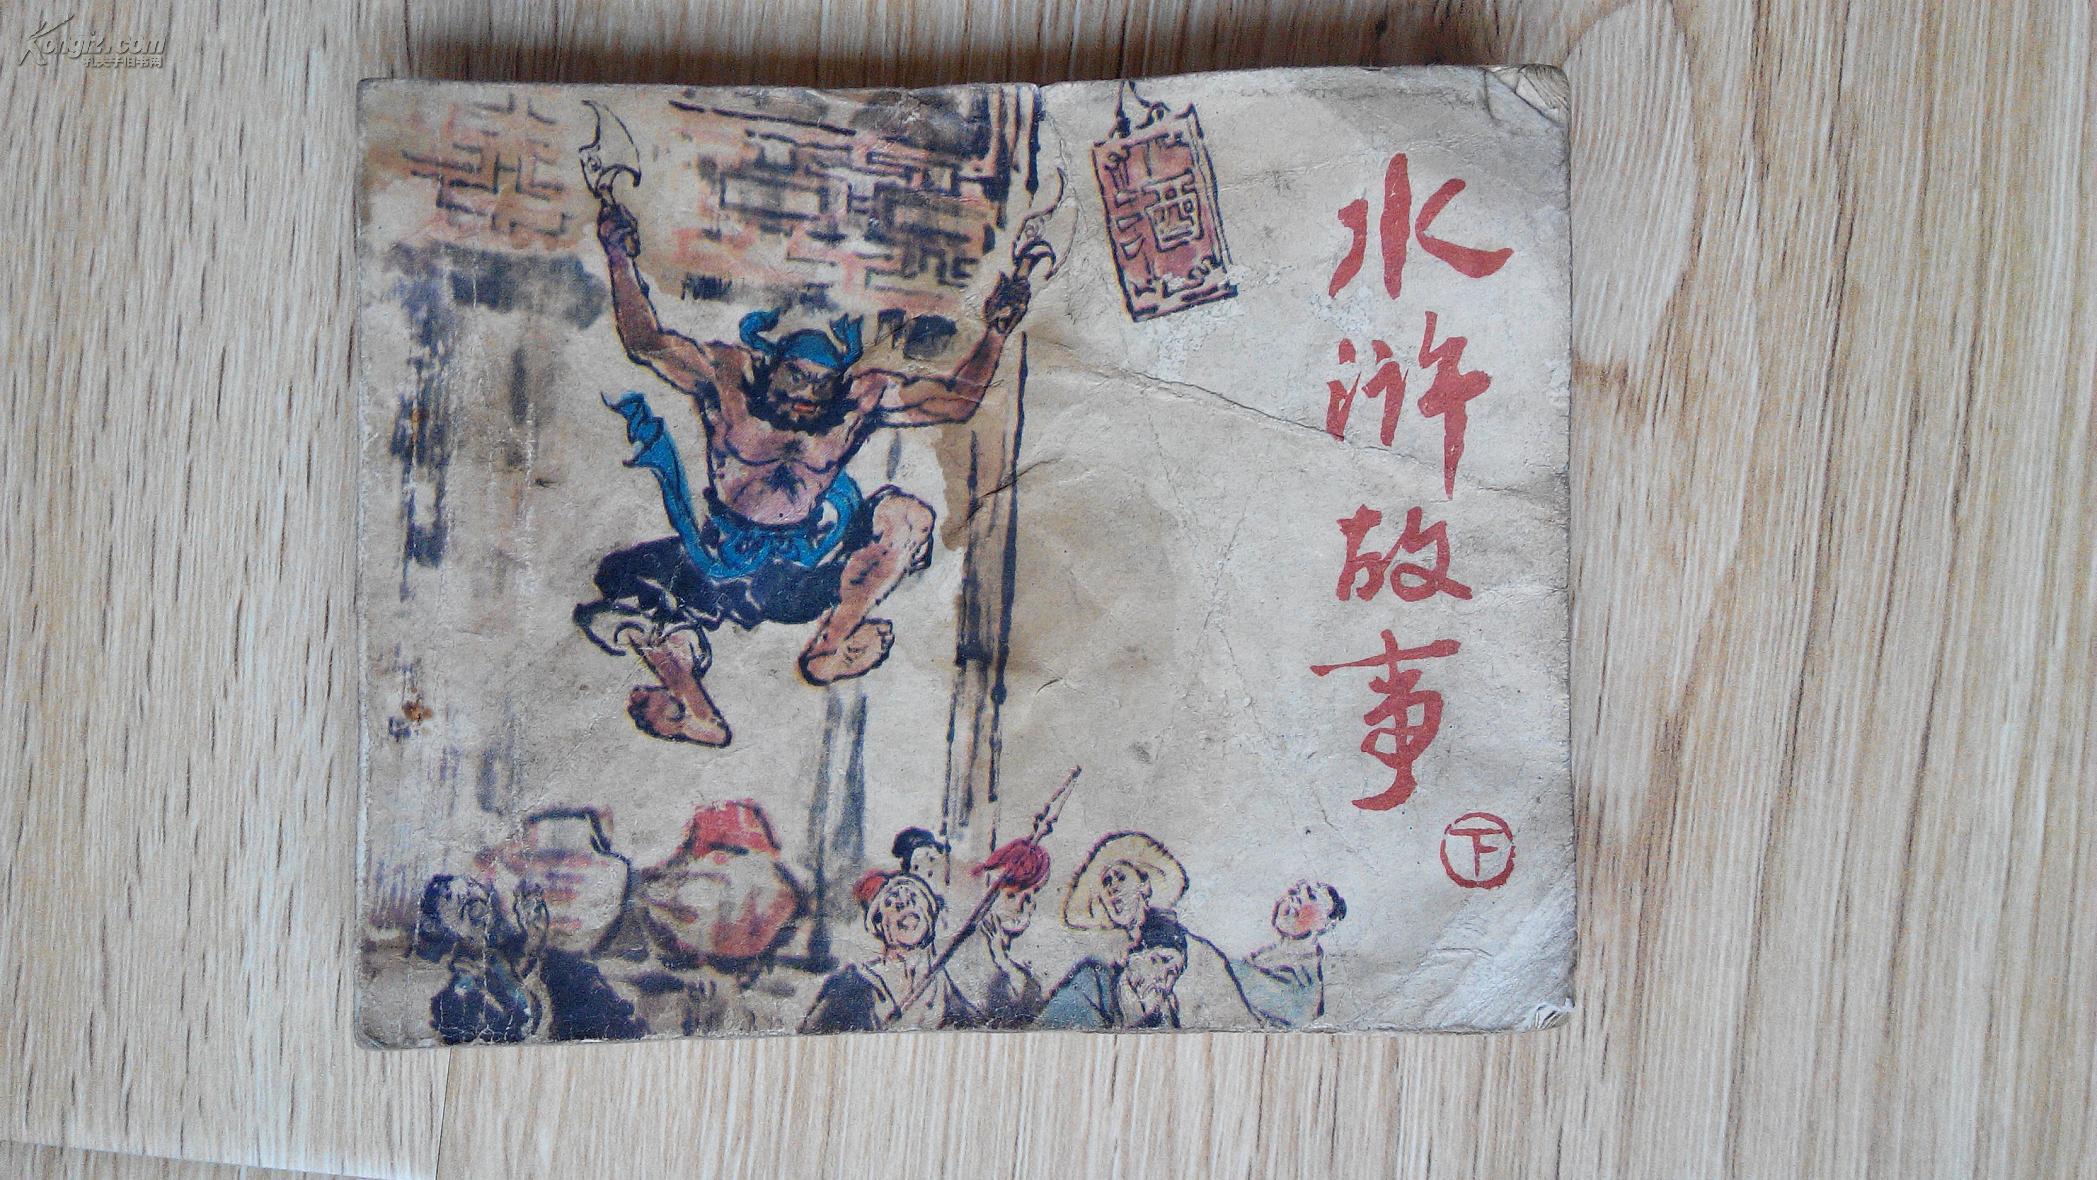 Kongfz.com
孔夫子旧书网
水浒故事
下
酒